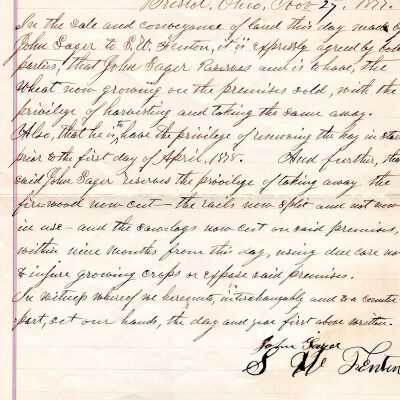 Bristol, Ohio, Nov 27, 1877.
In the sale and conveyance of land this day made by
John Sager to S. W. Fenton, it is expressly agreed by both
parties, that John Sager Reserves and is to have, the
wheat now growing on the premises sold, with the
privilege of harvesting and taking the same away.
Also, that he is to have the privilege of removing the hay in
prior to the first day of April, 1878. And further, that
said John Sager reserves the privilege of taking away the
fire-wood now cut – the rails now split and not now
in use – and the sawlogs now cut on said premises,
within nine months from this day, using due care not
to injure growing crops or expose said premises.
In witness whereof we hereunto, interchangably and to a counter
part, set our hands, the day and year first above written.
John Sager
S W Fenton